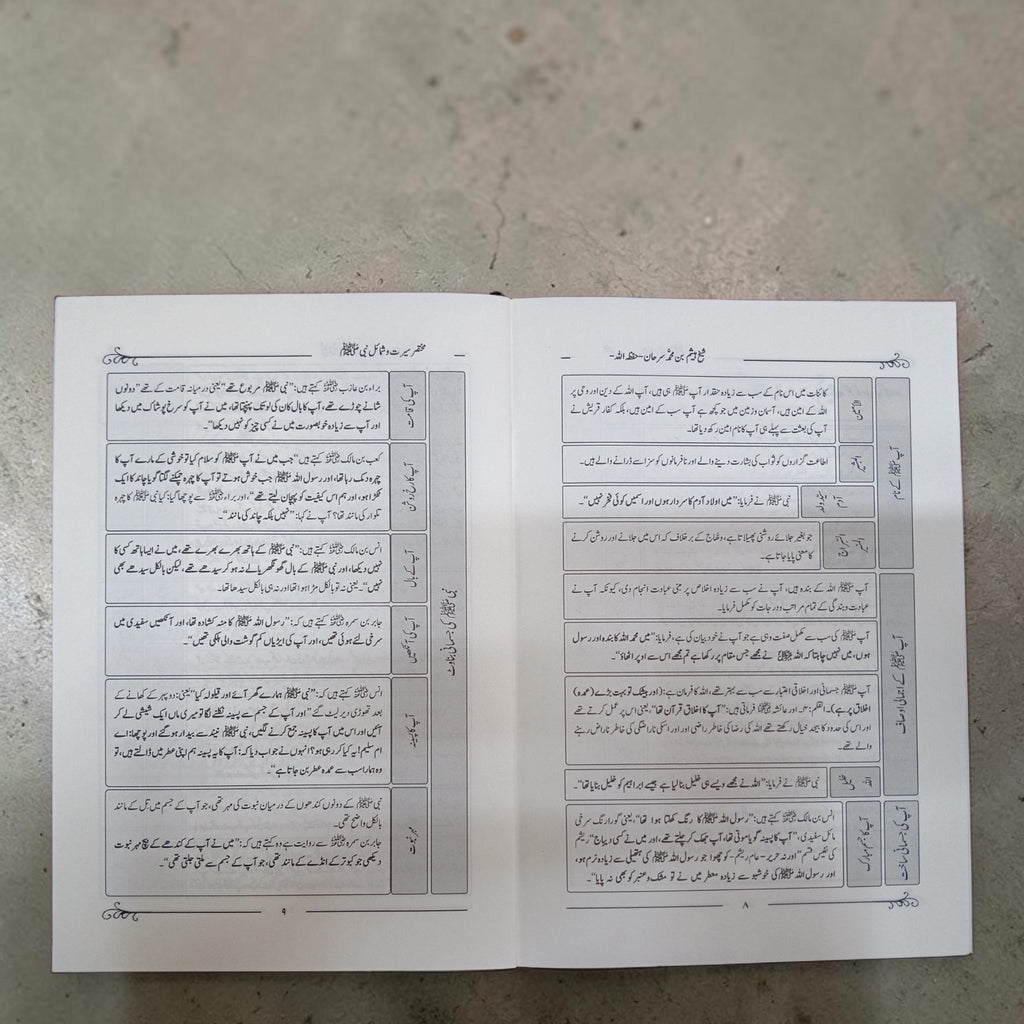 شیخ ہیثم بن محمد سرحان -حفظہ اللہ-
آپ ﷺ کے نام
الأمین
کائنات میں اس نام کے سب سے زیادہ حقدار آپ ﷺ ہی ہیں، آپ اللہ کے دین اور وحی پر
اللہ کے امین ہیں، آسمان و زمین میں جو کچھ ہے آپ سب کے امین ہیں، بلکہ کفار قریش نے
آپ کی بعثت سے پہلے ہی آپ کا نام امین رکھ دیا تھا۔
البشیر
اطاعت گزاروں کو ثواب کی بشارت دینے والے اور نافرمانوں کو سزا سے ڈرانے والے ہیں۔
سید ولد
آدم
نبی ﷺ نے فرمایا: ”میں اولاد آدم کا سردار ہوں اور اسمیں کوئی فخر نہیں“۔
السراج
المنیر
جو بغیر جلائے روشنی پھیلاتا ہے، وھاج کے برخلاف کہ اس میں جلانے اور روشن کرنے
کا معنی پایا جاتا ہے۔
آپ ﷺ کے اجمالی اوصاف
آپ ﷺ اللہ کے بندہ ہیں، آپ نے سب سے زیادہ اخلاص پر مبنی عبادت انجام دی، کیونکہ آپ نے
عبادت و بندگی کے تمام مراتب و درجات کو مکمل فرمایا۔
آپ ﷺ کی سب سے مکمل صفت وہی ہے جو آپ نے خود بیان کی ہے، فرمایا: ”میں محمد اللہ کا بندہ اور رسول
ہوں، میں نہیں چاہتا کہ اللہ ﷻ نے مجھے جس مقام پر رکھا ہے تم مجھے اس سے اوپر اٹھاؤ“۔
آپ ﷺ جسمانی اور اخلاقی اعتبار سے سب سے بہتر تھے، اللہ کا فرمان ہے: (اور بیشک تو بہت بڑے (عمدہ)
اخلاق پر ہے)۔ القلم: ٤۔ اور عائشہ رضی اللہ عنہا فرماتی ہیں: ”آپ کا اخلاق قرآن تھا“، یعنی اس پر عمل کرتے تھے
اور اس کی حدود کا بیحد خیال رکھتے تھے اللہ کی رضا کی خاطر راضی اور اور اسکی ناراضگی کی خاطر ناراض رہنے
والے تھے۔
خلیل
اللہ
نبی ﷺ نے فرمایا: ”اللہ نے مجھے ویسے ہی خلیل بنا لیا ہے جیسے ابراہیم کو خلیل بنایا تھا“۔
آپ کی جسمانی ساخت
آپ کا جسم مبارک
انس بن مالک رضی اللہ عنہ کہتے ہیں: ”رسول اللہ ﷺ کا رنگ کھلتا ہوا تھا“، یعنی گورا رنگ سرخی
مائل سفیدی، ”آپ کا پسینہ گویا موتی تھا، آپ جھک کر چلتے تھے، اور میں نے کسی دیباج“ ریشم
کی نفیس قسم ”اور نہ حریر- عام ریشم- کو چھوا جو رسول اللہ ﷺ کی ہتھیلی سے زیادہ نرم ہو،
اور رسول اللہ ﷺ کی خوشبو سے زیادہ معطر میں نے تو مشک و عنبر کو بھی نہ پایا“۔
٨
مختصر سیرت و شمائل نبی ﷺ
نبی ﷺ کی جسمانی بناوٹ
آپ کی قامت
براء بن عازب رضی اللہ عنہ کہتے ہیں: ”نبی ﷺ مربوع تھے“ یعنی درمیانہ قامت کے تھے ”دونوں
شانے چوڑے تھے، آپ کا بال کان کی لو تک پہنچتا تھا، میں نے آپ کو سرخ پوشاک میں دیکھا
اور آپ سے زیادہ خوبصورت میں نے کسی چیز کو نہیں دیکھا“۔
آپ کا رخ روشن
کعب بن مالک رضی اللہ عنہ کہتے ہیں ”جب میں نے آپ ﷺ کو سلام کیا تو خوشی کے مارے آپ کا
چہرہ دمک رہا تھا، اور رسول اللہ ﷺ جب خوش ہوتے تو آپ کا چہرہ چمکنے لگتا گویا چاند کا ایک
ٹکڑا ہو، اور ہم اس کیفیت کو پہچان لیتے تھے“، اور براء رضی اللہ عنہ سے پوچھا گیا: کیا نبی ﷺ کا چہرہ
تلوار کی مانند تھا؟ آپ نے کہا: ”نہیں بلکہ چاند کی مانند“۔
آپ کے بال
انس بن مالک رضی اللہ عنہ کہتے ہیں: ”نبی ﷺ کے ہاتھ بھرے بھرے تھے، میں نے ایسا ہاتھ کسی کا
نہیں دیکھا، اور نبی ﷺ کے بال گھونگھریالے نہ ہو کر سیدھے تھے، لیکن بالکل سیدھے بھی
نہیں“۔ یعنی نہ تو بالکل مڑا ہوا تھا اور نہ ہی بالکل سیدھا تھا۔
آپ کی آنکھیں
جابر بن سمرہ رضی اللہ عنہ کہتے ہیں کہ: ”رسول اللہ ﷺ کا منہ کشادہ تھا، اور آنکھیں سفیدی میں
سرخی لئے ہوئی تھیں، اور آپ کی ایڑیاں کم گوشت والی ہلکی تھیں“۔
آپ کا پسینہ
انس رضی اللہ عنہ کہتے ہیں کہ: ”نبی ﷺ ہمارے گھر آئے اور قیلولہ کیا“ یعنی: دوپہر کے کھانے کے
بعد تھوڑی دیر لیٹ گئے ”اور آپ کے جسم سے پسینہ نکلنے لگا تو میری ماں ایک شیشی لے کر
آئیں اور اس میں آپ کا پسینہ جمع کرنے لگیں، نبی ﷺ نیند سے بیدار ہو گئے اور پوچھا: اے
ام سلیم! یہ کیا کر رہی ہو؟ انہوں نے جواب دیا کہ: آپ کا یہ پسینہ ہم اپنی عطر میں ڈالتے ہیں، تو
وہ ہمارا سب سے عمدہ عطر بن جاتا ہے“۔
مہر نبوت
نبی ﷺ کے دونوں کندھوں کے درمیان نبوت کی مہر تھی، جو آپ کے جسم میں تل کے مانند
بالکل واضح تھی۔
جابر بن سمرہ رضی اللہ عنہ سے روایت ہے وہ کہتے ہیں کہ: ”میں نے آپ کے کندھے کے بیچ مہر نبوت
دیکھی جو کبوتر کے انڈے کے مانند تھی، جو آپ کے جسم سے ملتی جلتی تھی“۔
٩